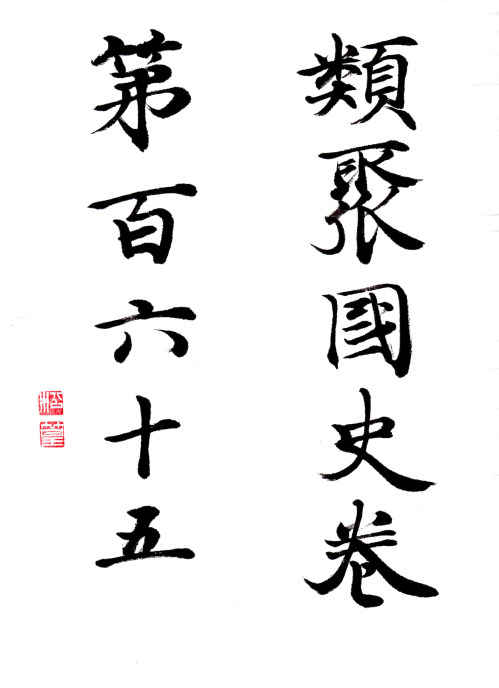 類聚國史巻
第百六十五